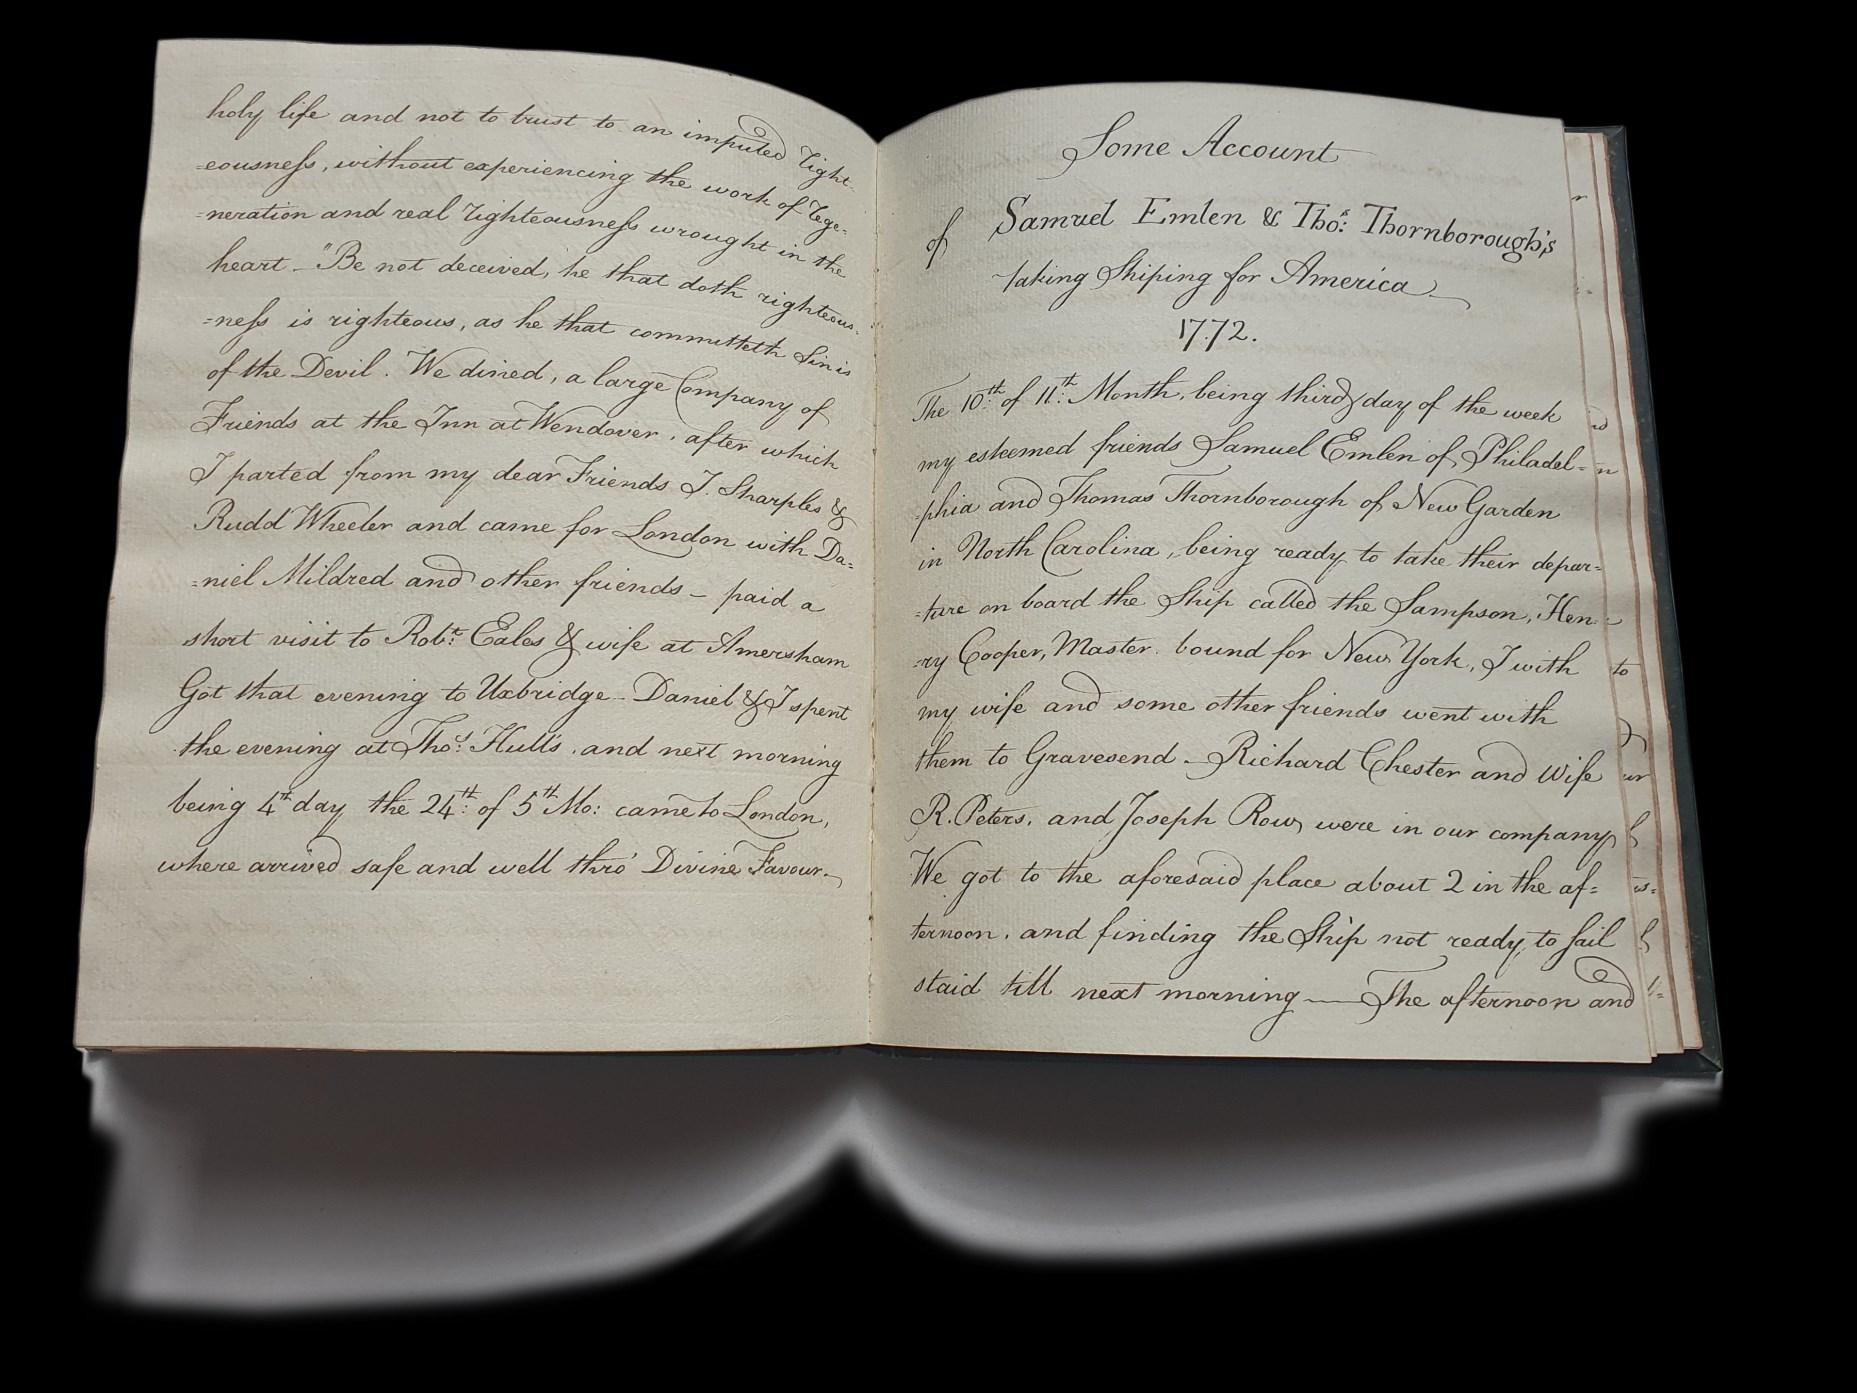 holy life and not to trust to an imputed right-
=eousneſs, without experiencing the work of rege=
=neration and real righteousneſs wrought in the
heart - "Be not deceived, he that doth righteous-
=neſs is righteous, as he that committeth Sin is
of the Devil. We dined, a large Company of
Friends at the Inn at Wendover, after which
I parted from my dear Friends I. Sharples &
Rudd Wheeler and came for London with Da=
=niel Mildred and other friends - paid a
short visit to Robt: Eales & wife at Amersham
Got that evening to Uxbridge - Daniel & I spent
the evening at Thos: Hull's, and next morning
being 4th day the 24th: of 5th Mo: came to London,
where arrived safe and well thro' Divine Favour.-
Some Account
of Samuel Emlen & Thos: Thornborough's
taking Shiping for America
1772.
The 10th: of 11th: Month, being third day of the week
my esteemed friends Samuel Emlen of Philadel=
=phia and Thomas Thornborough of New Garden
in North Carolina, being ready to take their depar=
=ture on board the Ship called the Sampson, Hen=
=ry Cooper, Master. bound for New York, I with
my wife and some other friends went with
them to Gravesend - Richard Chester and Wife
R. Peters, and Joseph Row were in our company
We got to the aforesaid place about 2 in the af=
ternoon, and finding the Ship not ready to sail
staid till next morning — The afternoon and